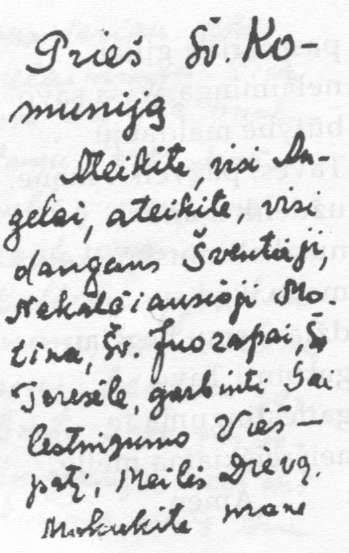 Prieš Šv. Ko-
muniją
Ateikite, visi An-
gelai, ateikite, visi
dangaus Šventieji,
Nekalčiausioji Mo-
tina, Šv. Juozapai, Šv.
Teresėle, garbinti Gai
lestingumo Vieš-
patį, Meilės Dievą.
Mokykite mane